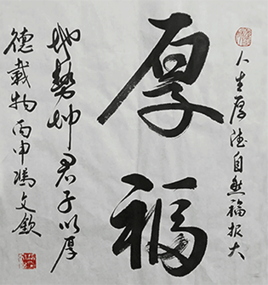 人生厚德自然福报大
厚福
地势坤君子以厚
德载物丙申冯文钦